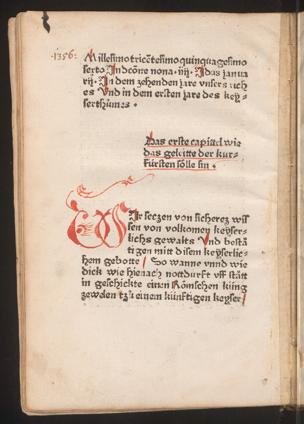 1356:
Millesimo tricētesimo quinquagesimo
sexto Indcōne nona · iiij · Idas janua
rij · In dem zehenden jare vnser rich
es Vnd in dem ersten jare des key-
serthůmes ·
Das erste capitel wie
das geleitte der kur-
fürsten sölle sin ·
WIr seczen von sicherer wis
sen von volkomen keyser-
lichs gewalts Vnd bestä
tigen mitt disem keyserlie-
hem gebotte / So wanne vnnd wie
dick wie hienach nottdurft vff stätt
in geschichte einen Römschen küng
zewelen tzů einem künftigen keyser /